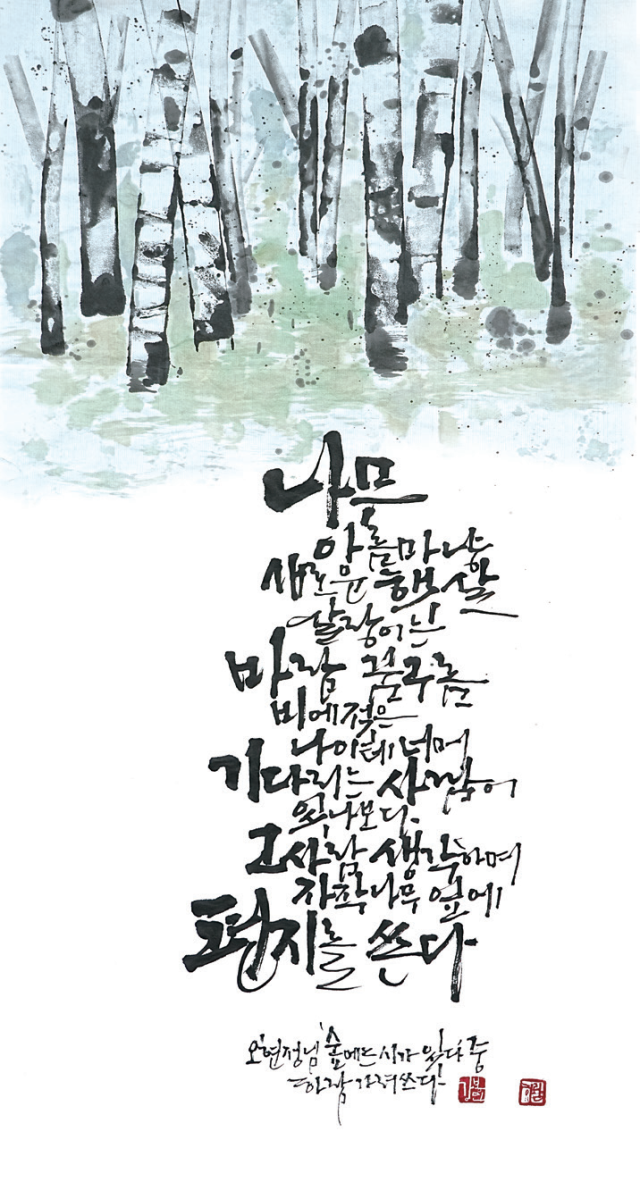 나무
새로운 햇살
살랑이는
바람 꿈 구름
비에 젖은
나이테 너머
기다리는 사람이
있나보다.
그 사람 생각하며
자작나무 옆에
편지를 쓴다
오현정님 '숲에는 시가 있다' 중
가려쓰다